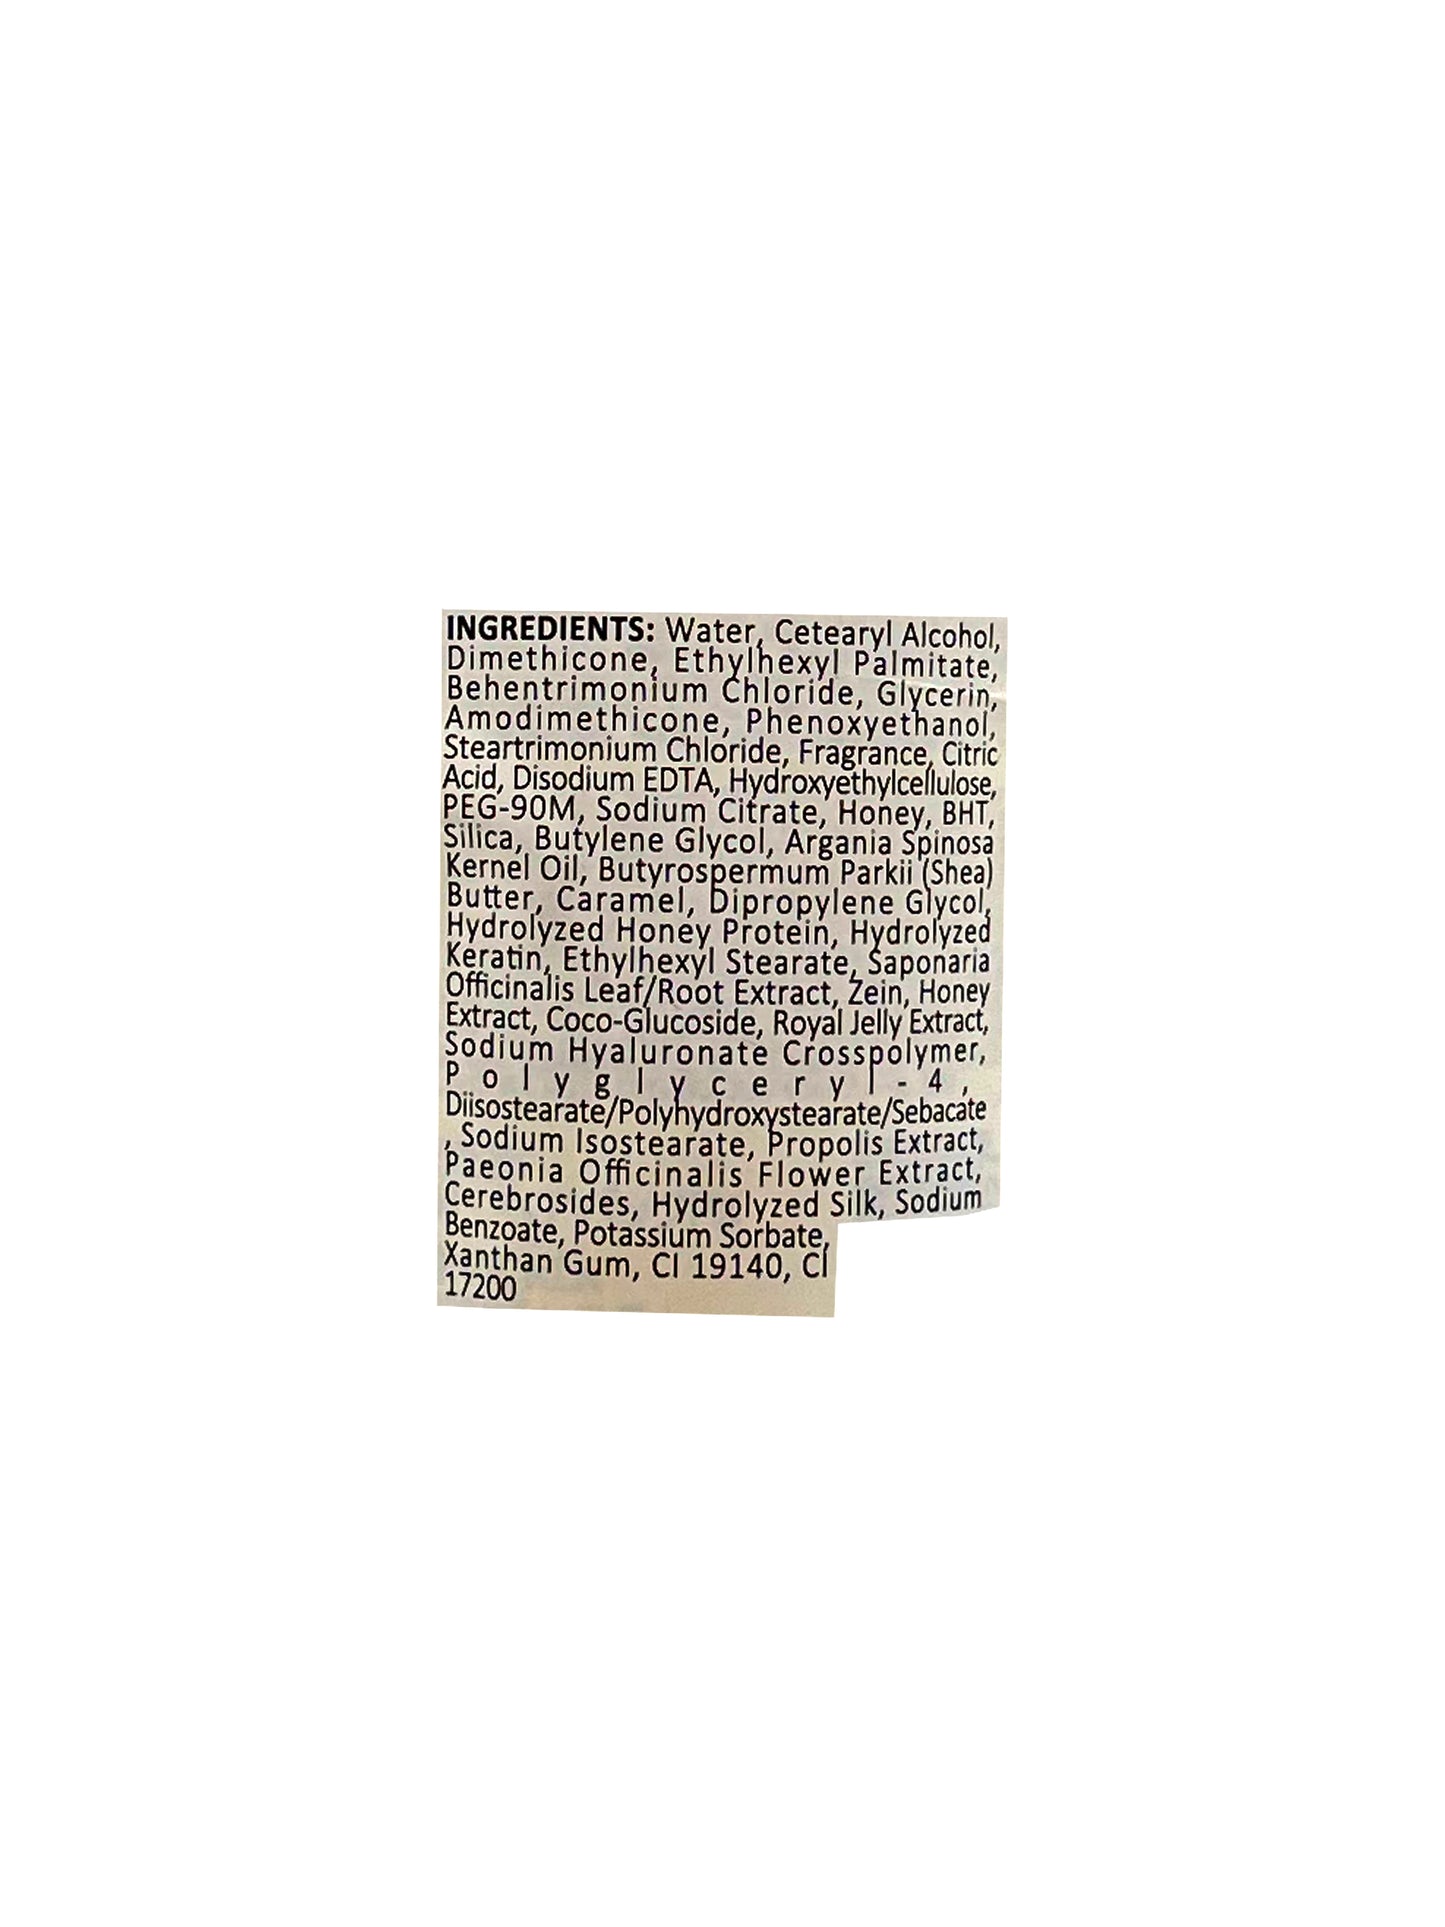 INGREDIENTS: Water, Cetearyl Alcohol,
Dimethicone, Ethylhexyl Palmitate,
Behentrimonium Chloride, Glycerin,
Amodimethicone, Phenoxyethanol,
Steartrimonium Chloride, Fragrance, Citric
Acid, Disodium EDTA, Hydroxyethylcellulose,
PEG-90M, Sodium Citrate, Honey, BHT,
Silica, Butylene Glycol, Argania Spinosa
Kernel Oil, Butyrospermum Parkii (Shea)
Butter, Caramel, Dipropylene Glycol,
Hydrolyzed Honey Protein, Hydrolyzed
Keratin, Ethylhexyl Stearate, Saponaria
Officinalis Leaf/Root Extract, Zein, Honey
Extract, Coco-Glucoside, Royal Jelly Extract,
Sodium Hyaluronate Crosspolymer,
Polyglyceryl-4,
Diisostearate/Polyhydroxystearate/Sebacate
, Sodium Isostearate, Propolis Extract,
Paeonia Officinalis Flower Extract,
Cerebrosides, Hydrolyzed Silk, Sodium
Benzoate, Potassium Sorbate,
Xanthan Gum, CI 19140, CI
17200